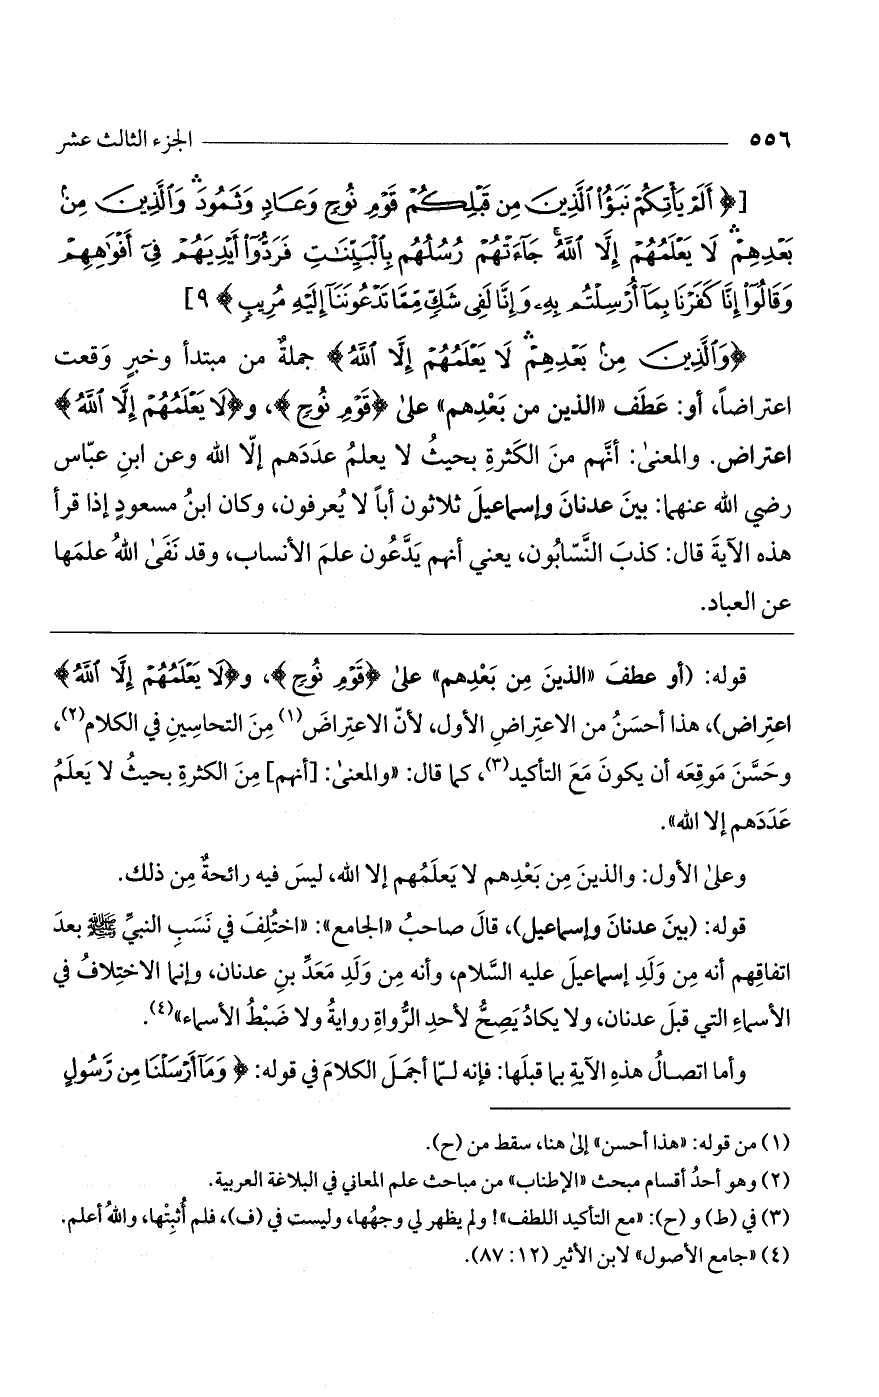 ٥٥٦ ــــــــــــــــــــ الجزء الثالث عشر
[﴿ أَلَمْ يَأْتِكُمْ نَبَؤُا۟ ٱلَّذِينَ مِن قَبْلِكُمْ قَوْمِ نُوحٍ وَعَادٍ وَثَمُودَ ۛ وَٱلَّذِينَ مِنۢ
بَعْدِهِمْ ۛ لَا يَعْلَمُهُمْ إِلَّا ٱللَّهُ ۚ جَآءَتْهُمْ رُسُلُهُم بِٱلْبَيِّنَٰتِ فَرَدُّوٓا۟ أَيْدِيَهُمْ فِىٓ أَفْوَٰهِهِمْ
وَقَالُوٓا۟ إِنَّا كَفَرْنَا بِمَآ أُرْسِلْتُم بِهِۦ وَإِنَّا لَفِى شَكٍّ مِّمَّا تَدْعُونَنَآ إِلَيْهِ مُرِيبٍ ﴾ ٩]
﴿وَٱلَّذِينَ مِنۢ بَعْدِهِمْ ۛ لَا يَعْلَمُهُمْ إِلَّا ٱللَّهُ﴾ جملةٌ من مبتدأ وخبرٍ وَقعت
اعتراضاً، أو: عَطَف «الذين من بَعْدِهم» علىٰ ﴿قَوْمِ نُوحٍ﴾، و﴿لَا يَعْلَمُهُمْ إِلَّا ٱللَّهُ﴾
اعتراض. والمعنىٰ: أنَّهم منَ الكَثرةِ بحيثُ لا يعلمُ عدَدَهم إلّا الله وعن ابنِ عبّاس
رضي الله عنهما: بينَ عدنانَ وإسماعيلَ ثلاثون أباً لا يُعرفون، وكان ابنُ مسعودٍ إذا قرأ
هذه الآيةَ قال: كذبَ النَّسّابُون، يعني أنهم يَدَّعُون علمَ الأنساب، وقد نَفَىٰ اللهُ علمَها
عن العباد.
قوله: (أو عطفَ «الذينَ مِن بَعْدِهم» علىٰ ﴿قَوْمِ نُوحٍ﴾، و﴿لَا يَعْلَمُهُمْ إِلَّا ٱللَّهُ﴾
اعتِراض)، هذا أحسَنُ من الاعتِراضِ الأول، لأنّ الاعتِراضَ(١) مِنَ التحاسِينِ في الكلام(٢)،
وحَسَّنَ مَوقِعَه أن يكونَ مَعَ التأكيد(٣)، كما قال: «والمعنىٰ: [أنهم] مِنَ الكثرةِ بحيثُ لا يَعلَمُ
عَدَدَهم إلا الله».
وعلىٰ الأول: والذينَ مِن بَعْدِهم لا يَعلَمُهم إلا الله، ليسَ فيه رائحةٌ مِن ذلك.
قوله: (بينَ عدنانَ وإسماعيل)، قالَ صاحبُ «الجامع»: «اختُلِفَ في نَسَبِ النبيِّ ﷺ بعدَ
اتفاقِهم أنه مِن وَلَدِ إسماعيلَ عليه السَّلام، وأنه مِن وَلَدِ مَعَدِّ بنِ عدنان، وإنما الاختِلافُ في
الأسماءِ التي قبلَ عدنان، ولا يكادُ يَصِحُّ لأحدِ الرُّواةِ روايةٌ ولا ضَبْطُ الأسماء»(٤).
وأما اتصالُ هذهِ الآيةِ بما قبلَها: فإنه لـمّا أجمَلَ الكلامَ في قوله: ﴿ وَمَآ أَرْسَلْنَا مِن رَّسُولٍ
(١) من قوله: «هذا أحسن» إلىٰ هنا، سقط من (ح).
(٢) وهو أحدُ أقسام مبحث «الإطناب» من مباحث علم المعاني في البلاغة العربية.
(٣) في (ط) و (ح): «مع التأكيد اللطف»! ولم يظهر لي وجهُها، وليست في (ف)، فلم أُثبِتْها، واللهُ أعلم.
(٤) «جامع الأصول» لابن الأثير (١٢: ٨٧).